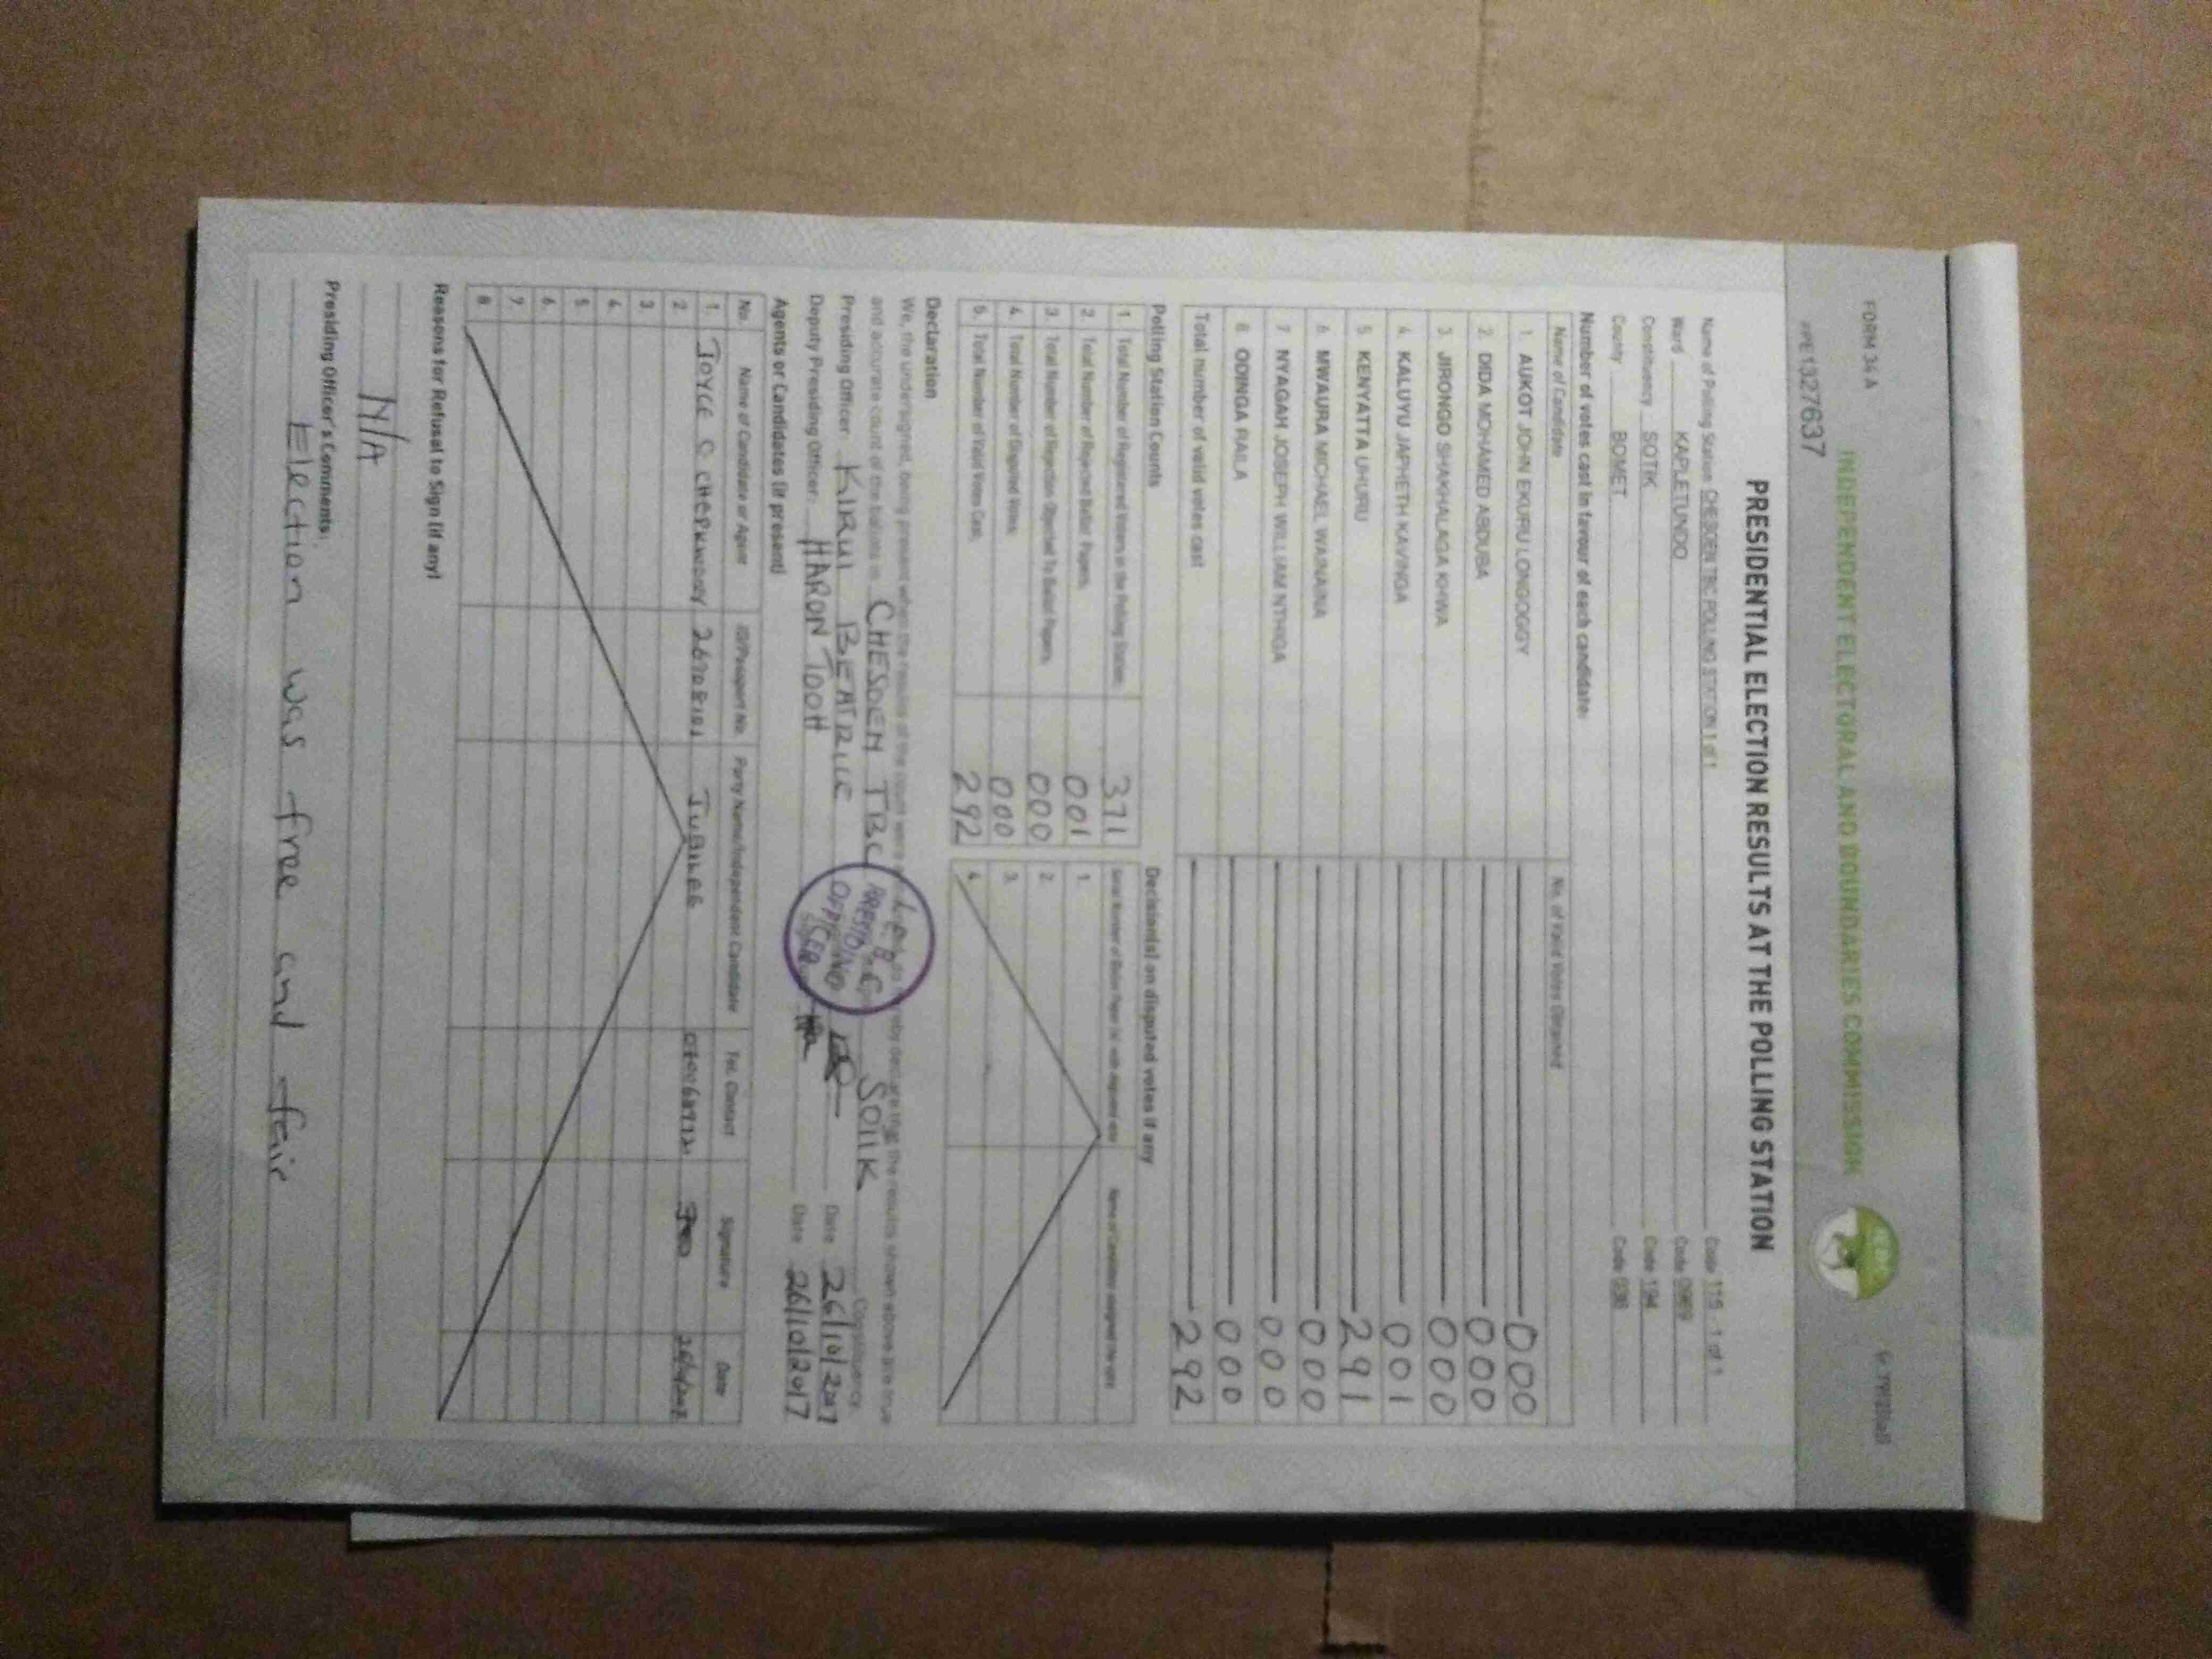 FORM 34 A
INDEPENDENT ELECTORAL AND BOUNDARIES COMMISSION
PPE1327637
IEBC
PRESIDENTIAL ELECTION RESULTS AT THE POLLING STATION
Name of Polling Station CHESOEN TBC POLLING STATION 1 of 1 Code 115 - 1 of 1
Ward KAPLETUNDO Code 0969
Constituency SOTIK Code 194
County BOMET Code 036
Number of votes cast in favour of each candidate:
Name of Candidate No. of Valid Votes Obtained
1. AUKOT JOHN EKURU LONGOGGY 000
2. DIDA MOHAMED ABDUBA 000
3. JIRONGO SHAKHALAGA KHWA 000
4. KALUYU JAPHETH KAVINGA 001
5. KENYATTA UHURU 291
6. MWAURA MICHAEL WAINAINA 000
7. NYAGAH JOSEPH WILLIAM NTHIGA 000
8. ODINGA RAILA 000
Total number of valid votes cast 292
Polling Station Counts Decision(s) on disputed votes if any
1. Total Number of Registered Voters in the Polling Station 371
2. Total Number of Rejected Ballot Papers 001
3. Total Number of Rejection Objected To Ballot Papers 000
4. Total Number of Disputed Votes 000
5. Total Number of Valid Votes Cast 292
1.
2.
3.
4.
Declaration
We, the undersigned, being present when the results of the count were declare that the results shown above are true
and accurate count of the ballots in CHESOEN TBC SOTIK Constituency
Presiding Officer: KIRUI BEATRICE Date 26/10/2017
Deputy Presiding Officer: HARON TOOH Date 26/10/2017
IEBC
PRESIDING
OFFICER
Agents or Candidates (if present)
No. Name of Candidate or Agent ID/Passport No. Party Name/Independent Candidate Tel. Contact Signature Date
1. JOYCE C CHEPKWONY JUBILEE
2
3
4
5
6
7
8
Reasons for Refusal to Sign (if any)
N/A
Presiding Officer's Comments:
Election was free and fair